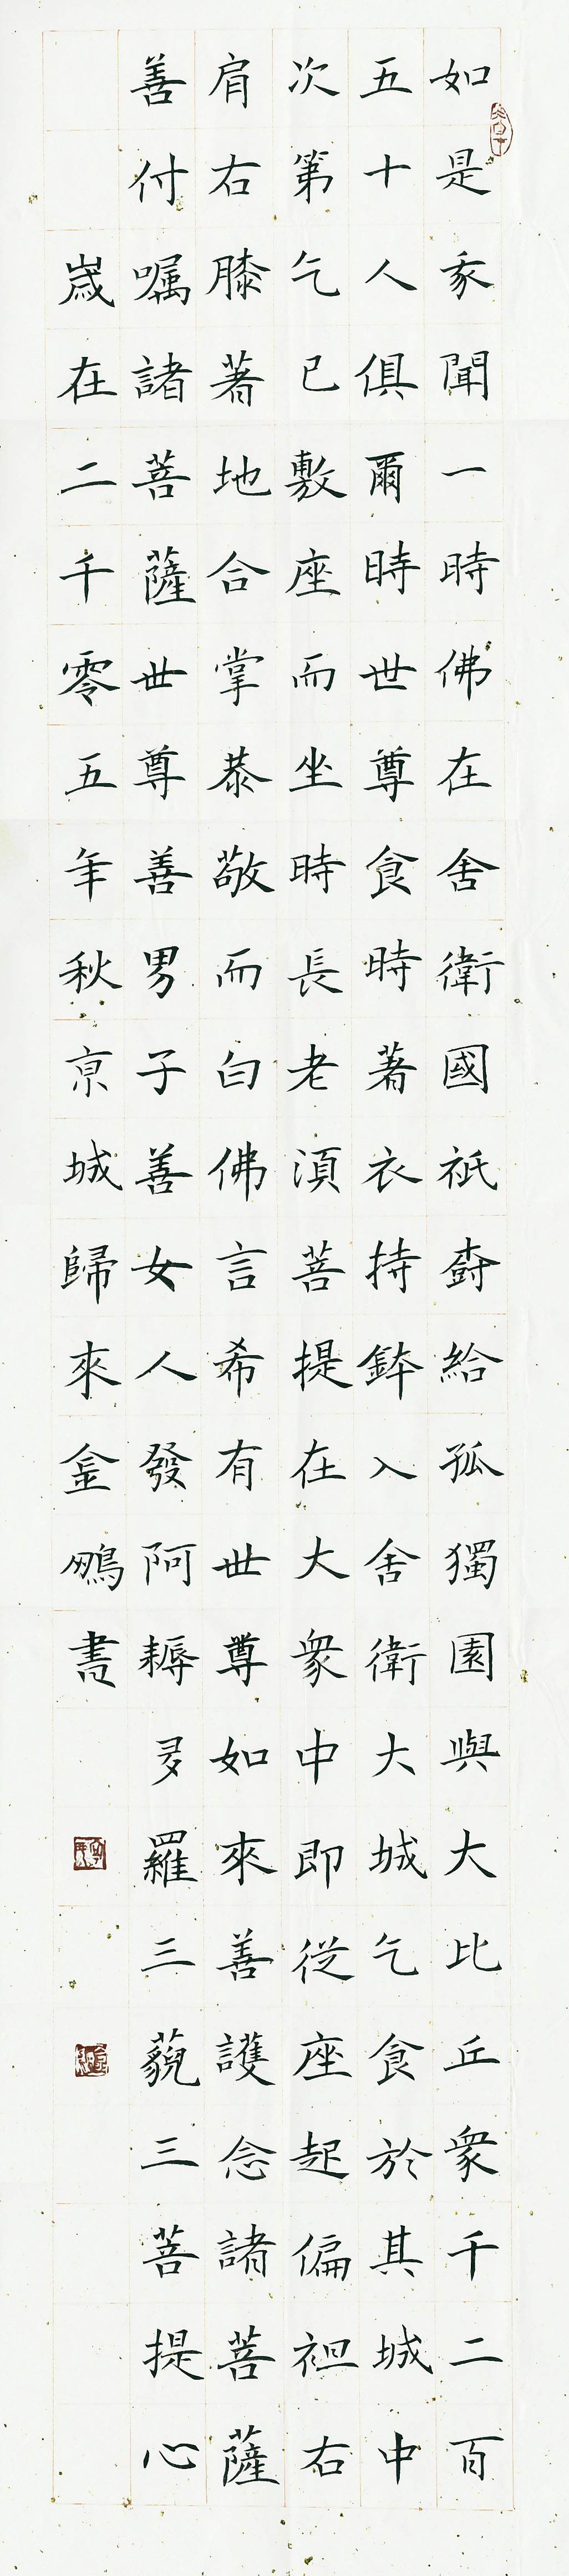 如是我聞一時佛在舍衛國祇樹給孤獨園與大比丘衆千二百
五十人俱爾時世尊食時著衣持鉢入舍衛大城乞食於其城中
次第乞已敷座而坐時長老湏菩提在大衆中即從座起偏袒右
肩右膝著地合掌恭敬而白佛言希有世尊如來善護念諸菩薩
善付囑諸菩薩世尊善男子善女人發阿耨多羅三藐三菩提心
歲在二千零五年秋京城歸來金鵬書